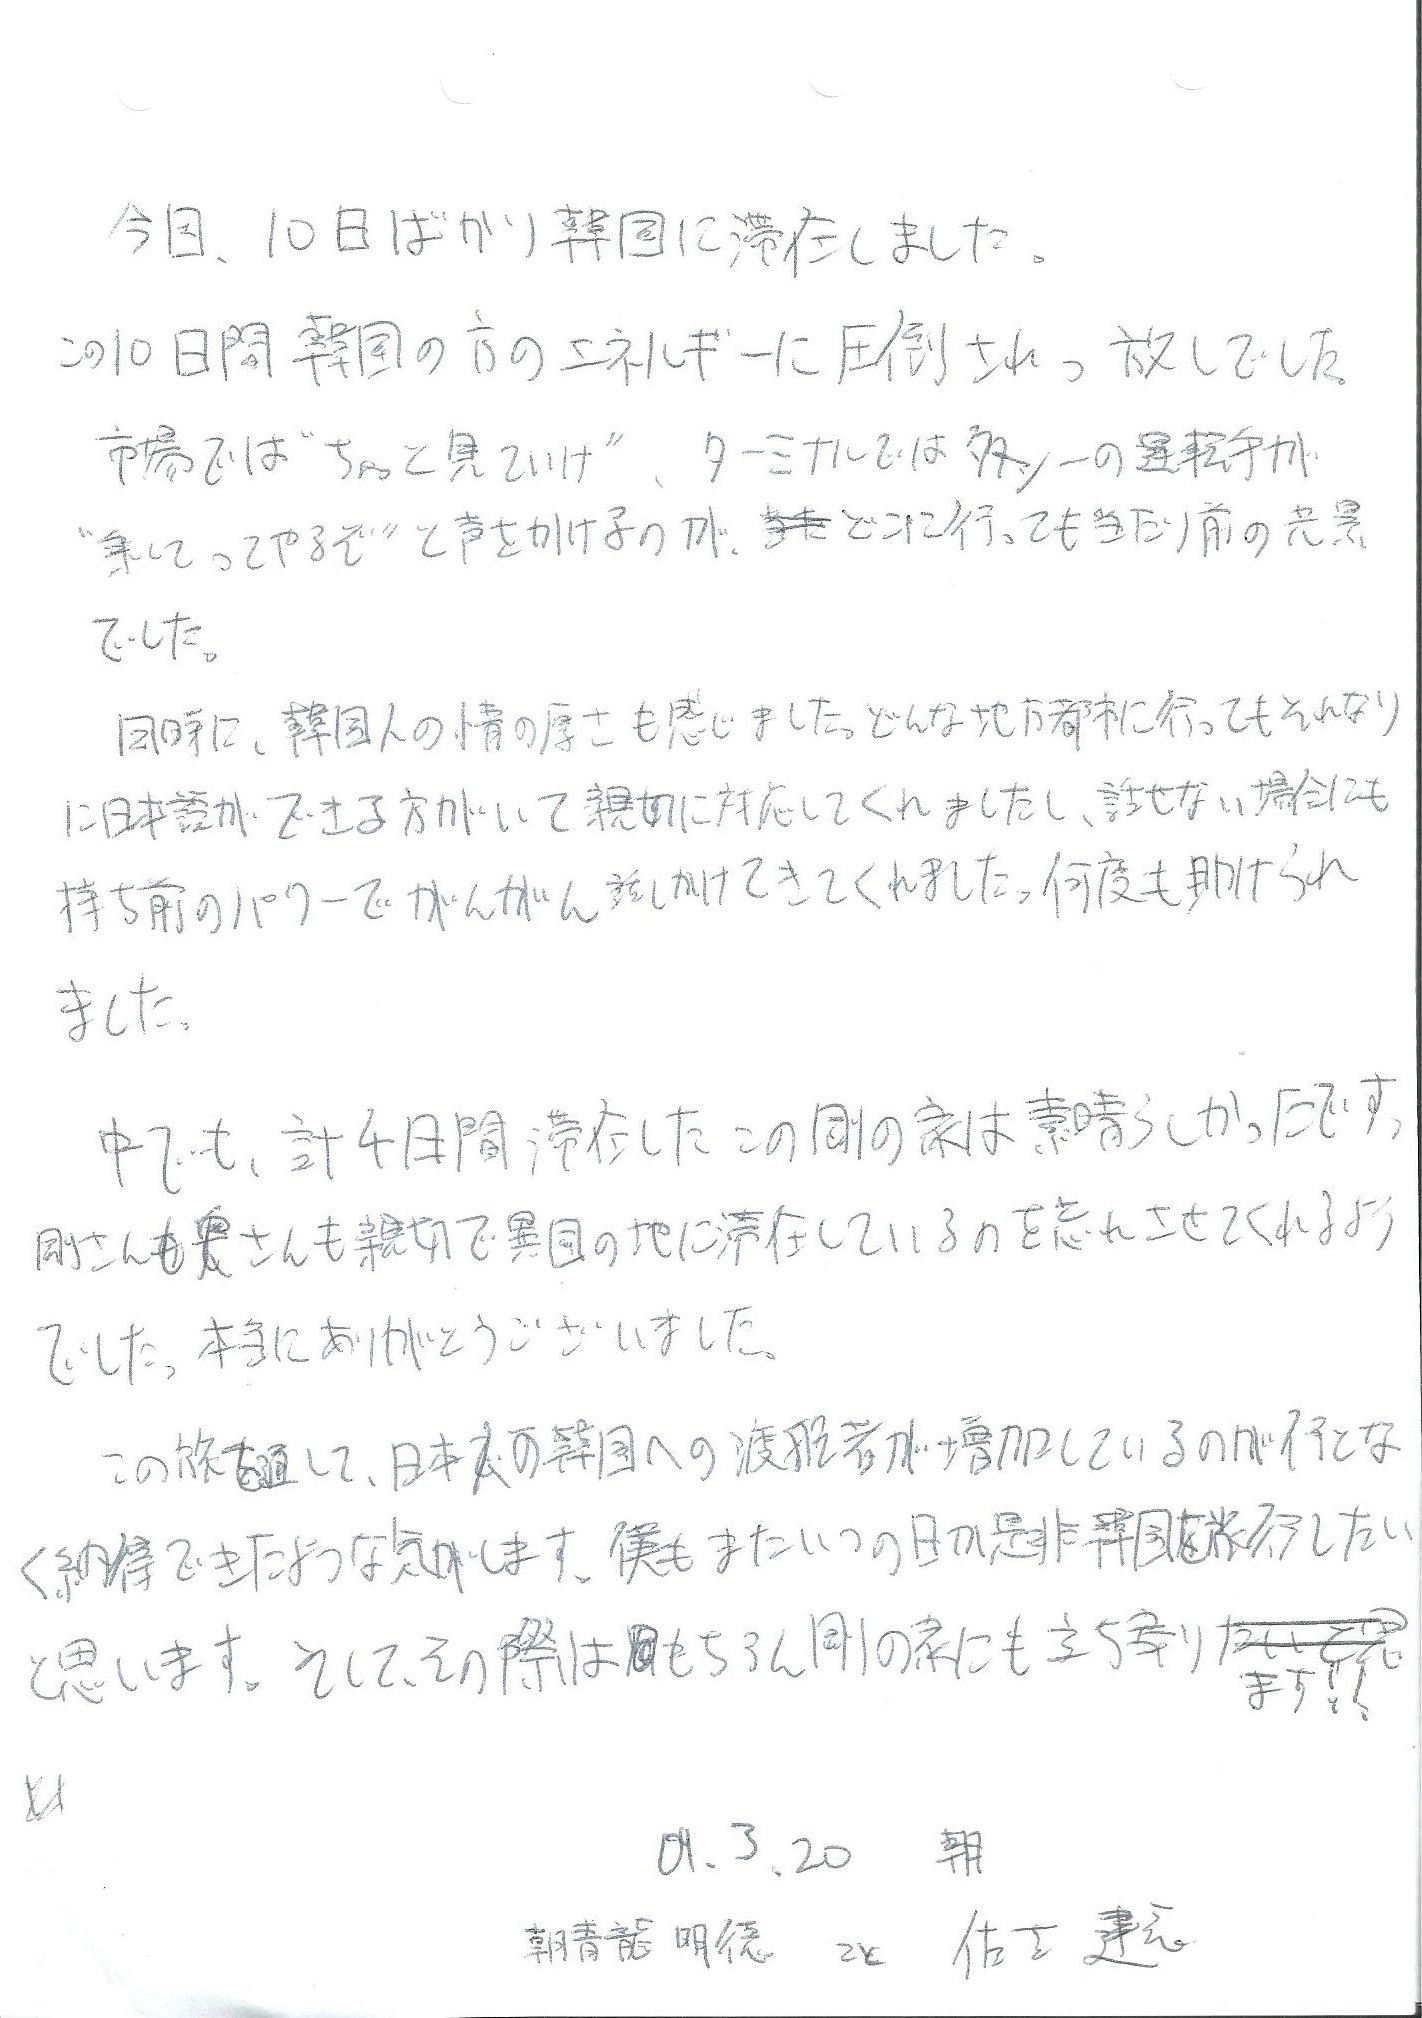 今回、10日ばかり韓国に滞在しました。
この10日間韓国の方のエネルギーに圧倒されっ放しでした。
市場では"ちょっと見ていけ"、ターミナルではタクシーの運転手が
"乗してってやるぞ"と声をかけるのが、どこに行っても当たり前の光景
でした。
同時に、韓国人の情の厚さも感じました。どんな地方都市に行ってもそれなり
に日本語ができる方がいて親切に対応してくれましたし、話せない場合にも
持ち前のパワーでがんがん話しかけてきてくれました。何度も助けられ
ました。
中でも、計4日間滞在したこの剛の家は素晴らしかったです。
剛さんも奥さんも親切で異国の地に滞在しているのを忘れさせてくれるよう
でした。本当にありがとうございました。
この旅を通して、日本の韓国への渡航者が増加しているのが何とな
く納得できたような気がします。僕もまたいつの日か是非韓国を旅行したい
と思います。そして、その際はもちろん剛の家にも立ち寄り
ます!!
3.20 朝
朝青龍 明徳 こと 佐